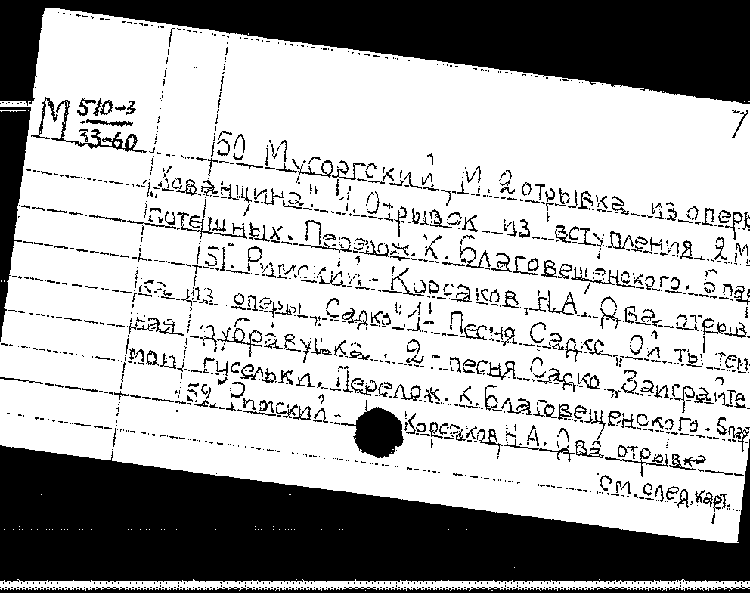 7
М 510-3
33-60
50 Мусоргский, М. 2 отрывка из оперы
„Хованщина". 1. Отрывок из вступления 2 М
потешных. Перелож. К. Благовещенского.
51. Римский-Корсаков, Н.А. Два отрыв
ка из оперы „Садко" 1- Песня Садко „Ой ты тем
ная дубравушка. 2-песня Садко „Заиграйте
мои гусельки. Перелож. К. Благовещенского.
52 Римский-Корсаков, Н.А. Два отрывка
см. след. карт.